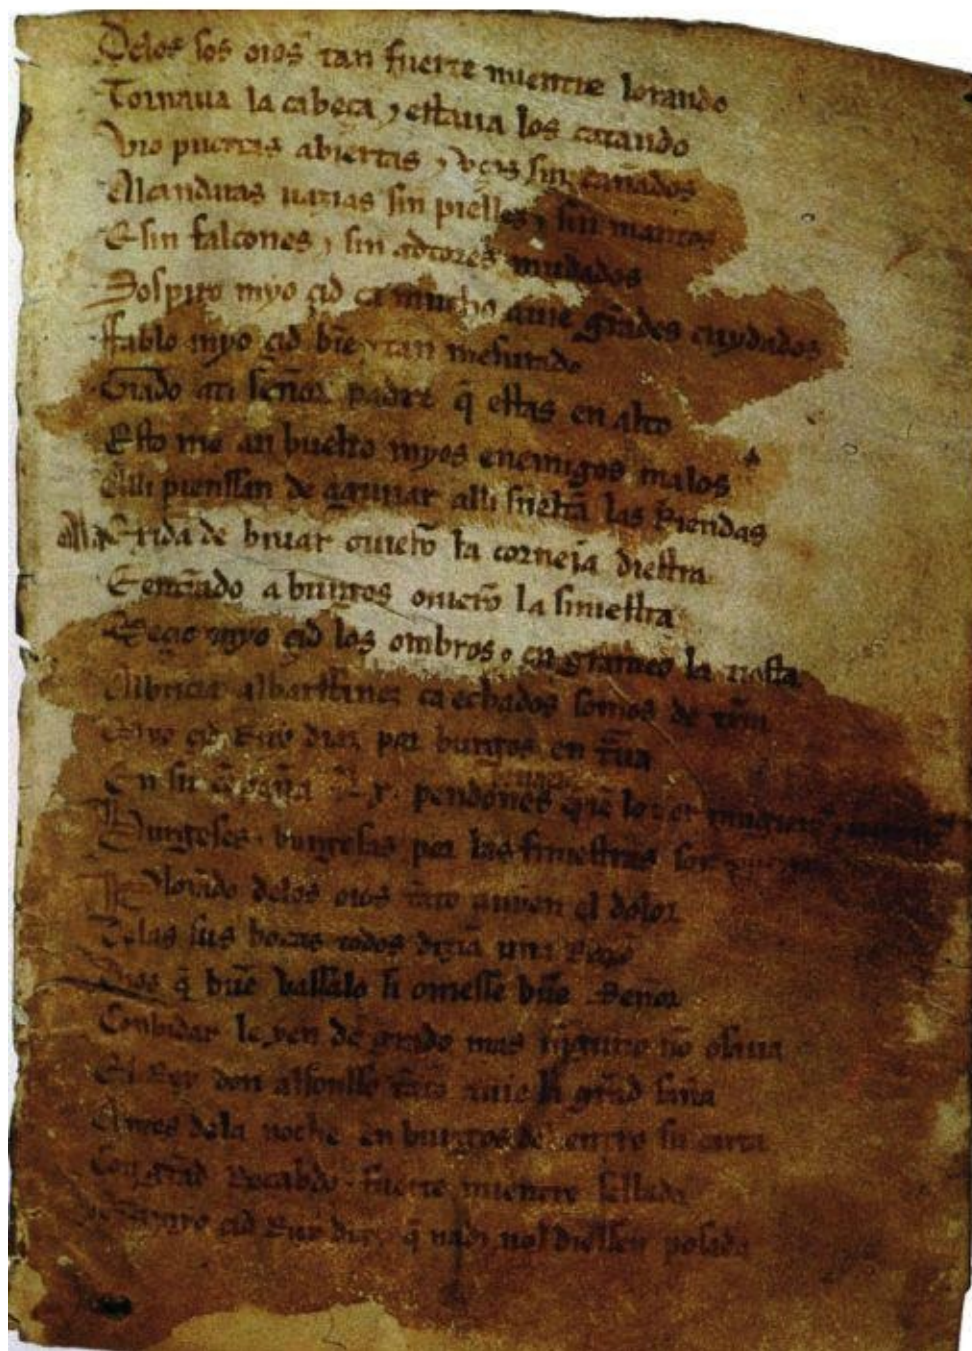 Delos sos oios tan fuerte mientre lorando
Tornaua la cabeça ⁊ estaua los catando
Vio puertas abiertas ⁊ vços sin cañados
Alcandaras uazias sin pielles ⁊ sin mantos
E sin falcones ⁊ sin adtores mudados
Sospiro myo çid ca mucho auie grãdes cuydados
Ffablo myo çid bie⁊ ⁊ tan mesurado
Grado ati señor padre q̃ estas en alto
Esto me an buelto myos enemigos malos
Alli pienssan de aguijar alli sueltã las Riendas
Ala Exida de biuar ouierõ la corneia diestra
E entrãdo a burgos ouierõ la siniestra
Meçio myo çid los ombros ⁊ en grameo la tiesta
Albricia albarffanez ca echados somos de tr̃ra
Myo çid Ruy diaz por burgos en traua
En su cõpaña Lx pendones
Burgeses ⁊ burgesas por las finiestras son
Plorãdo delos oios tãto auyen el dolor
Delas sus bocas todos dizian una Razo
Dios q̃ buẽ vassalo si ouiesse buẽ Señor
Conbidar le yen de grado mas ninguno nõ osaua
El Rey don alfonsso tãto auie la grãd saña
Antes dela noche en burgos del entro su carta
Con grãd Recabdo ⁊ fuerte mientre sellada
myo çid Ruy diaz q̃ nadi nol diessen posada